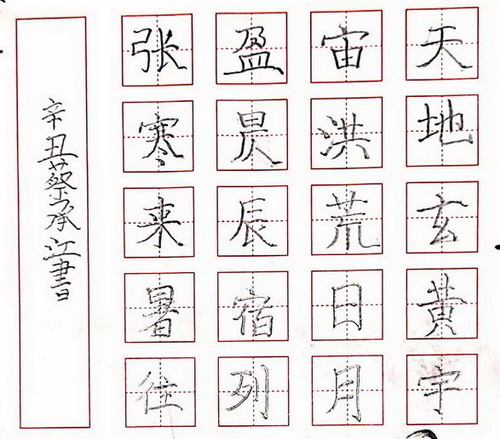 天地玄黄宇
宙洪荒日月
盈昃辰宿列
张寒来暑往
辛丑蔡承江書